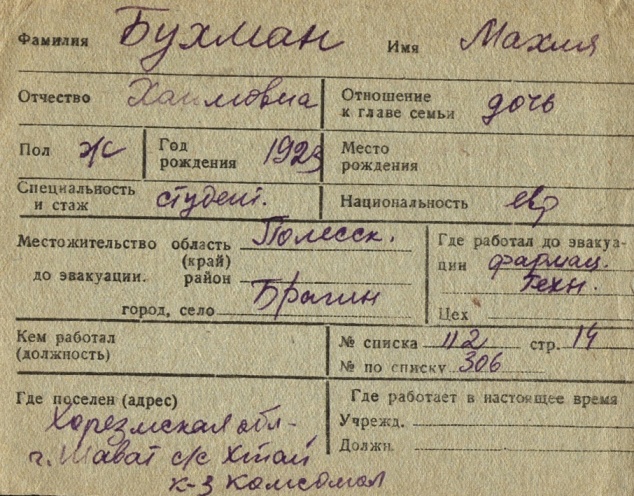 Фамилия Бухман Имя Махля
Отчество Хаимовна Отношение к главе семьи дочь
Пол ж Год рождения 1923 Место рождения
Специальность и стаж студент. Национальность евр
Местожительство область Полесск. Где работал до эвакуа-
(край) ции фармац.
до эвакуации. район Техн.
город, село Брагин Цех
Кем работал (должность) № списка 112 стр. 14
№ по списку 306
Где поселен (адрес) Где работает в настоящее время
Хорезмская обл- Учрежд.
г. Шават с/с Хтай Должн.
к-з Комсомол